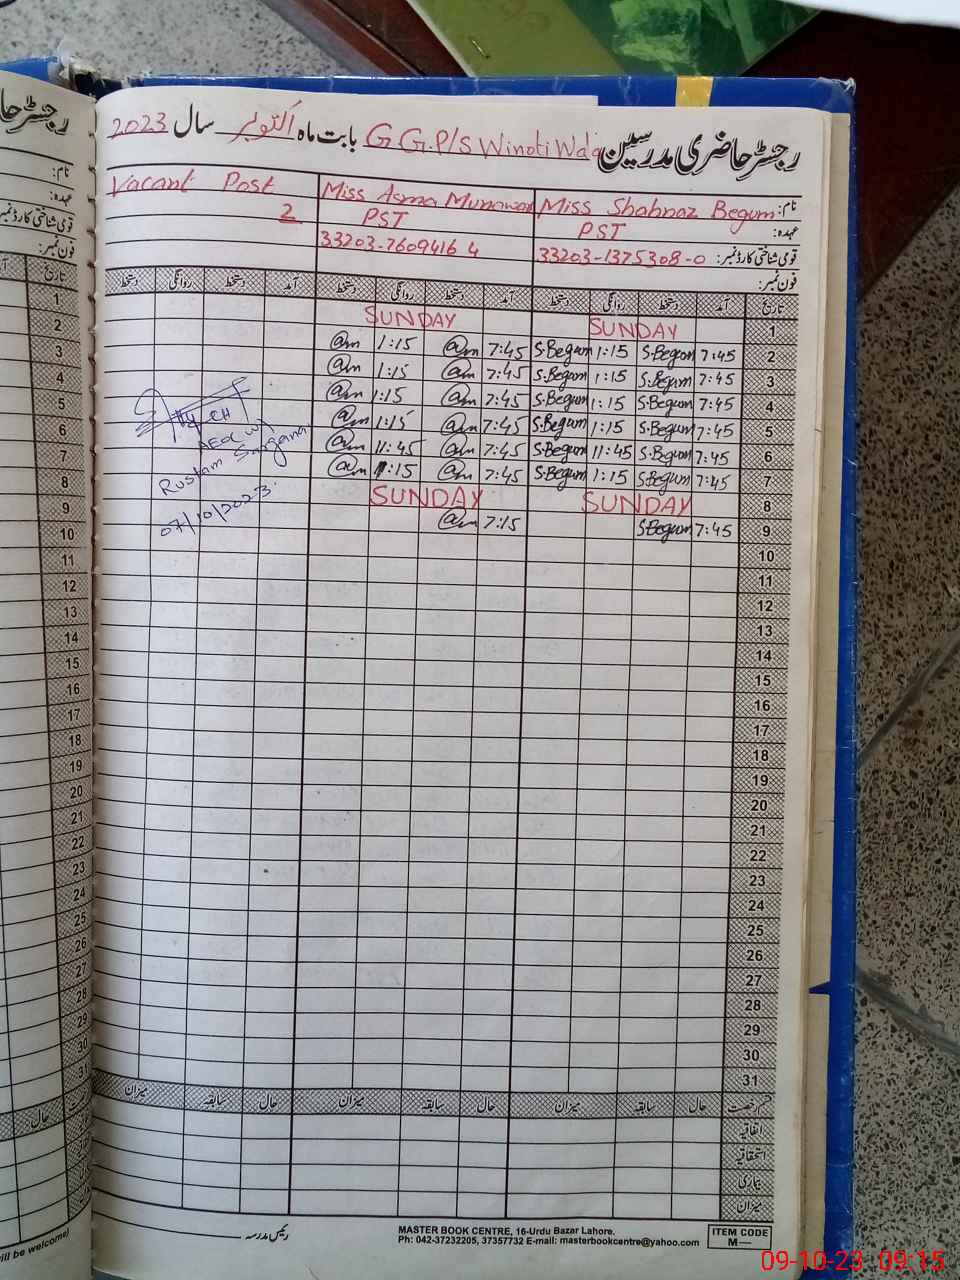 رجسٹر حاضری مدرسین G G.P/S Winoti Wala بابت ماہ اکتوبر سال 2023
نام: Miss Shabnaz Begum Miss Asma Munawar Vacant Post
عہدہ: PST PST 2
قومی شناختی کارڈ نمبر: 33203-1375308-0 33203-7609416 4
فون نمبر:
تاریخ آمد دستخط روانگی دستخط آمد دستخط روانگی دستخط آمد دستخط روانگی دستخط
1 SUNDAY SUNDAY
2 7:45 S.Begum 1:15 S.Begum 7:45 @m 1:15 @m
3 7:45 S.Begum 1:15 S.Begum 7:45 @m 1:15 @m
4 7:45 S.Begum 1:15 S.Begum 7:45 @m 1:15 @m
5 7:45 S.Begum 1:15 S.Begum 7:45 @m 1:15 @m
6 7:45 S.Begum 11:45 S.Begum 7:45 @m 11:45 @m
7 7:45 S.Begum 1:15 S.Begum 7:45 @m 1:15 @m
8 SUNDAY SUNDAY
9 7:45 S.Begum 7:15 @m
10
11
12
13
14
15
16
17
18
19
20
21
22
23
24
25
26
27
28
29
30
31
Rustam Sargana
07/10/2023
قسم رخصت حال سابقہ میزان حال سابقہ میزان حال سابقہ میزان
اتفاقیہ
استحقاقیہ
بیماری
میزان
رئیس مدرسہ
MASTER BOOK CENTRE, 16-Urdu Bazar Lahore.
Ph: 042-37232205, 37357732 E-mail: masterbookcentre@yahoo.com
ITEM CODE
M—
رجسٹر حا
نام:
عہدہ:
قومی شناختی کارڈ نمبر
فون نمبر:
تاریخ
1
2
3
4
5
6
7
8
9
10
11
12
13
14
15
16
17
18
19
20
21
22
23
24
25
26
27
28
29
30
31
حال
will be welcome)
09-10-23 09:15